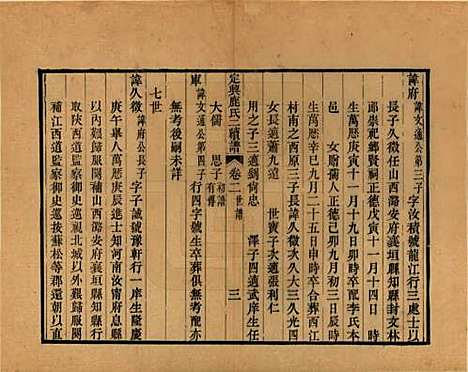 諱府諱文通公第三子字汝積號龍江行三處士以
長子久徵任山西潞安府襄垣縣知縣封文林
郎崇祀鄉賢祠正德戊寅十一月十四日時
生萬曆庚寅十一月十九日卯時卒配李氏本
邑女贈孺人正德己卯九月初三日辰時
生萬曆辛巳九月二十五日申時卒合葬西江
村南之西原三子長諱久徵次久大三久光四
女長適蕭九遠世賣子次適張利仁
用之子三適劉尚忠澤子四適武庠生任
定興鹿氏二續譜
卷二世譜
三
大儒思子有傳
軍諱文通公第四子行四字號生卒葬俱無考配亦
無考後嗣未詳
七世
諱久徵諱府公長子字子誠號豫軒行一庠生隆慶
庚午舉人萬曆庚辰進士知河南汝甯府息縣
以內艱歸服闋補山西潞安府襄垣縣知縣行
取陝西道監察御史巡視北城以外艱歸服闋
補江西道監察御史巡按蘇松等郡還朝以直